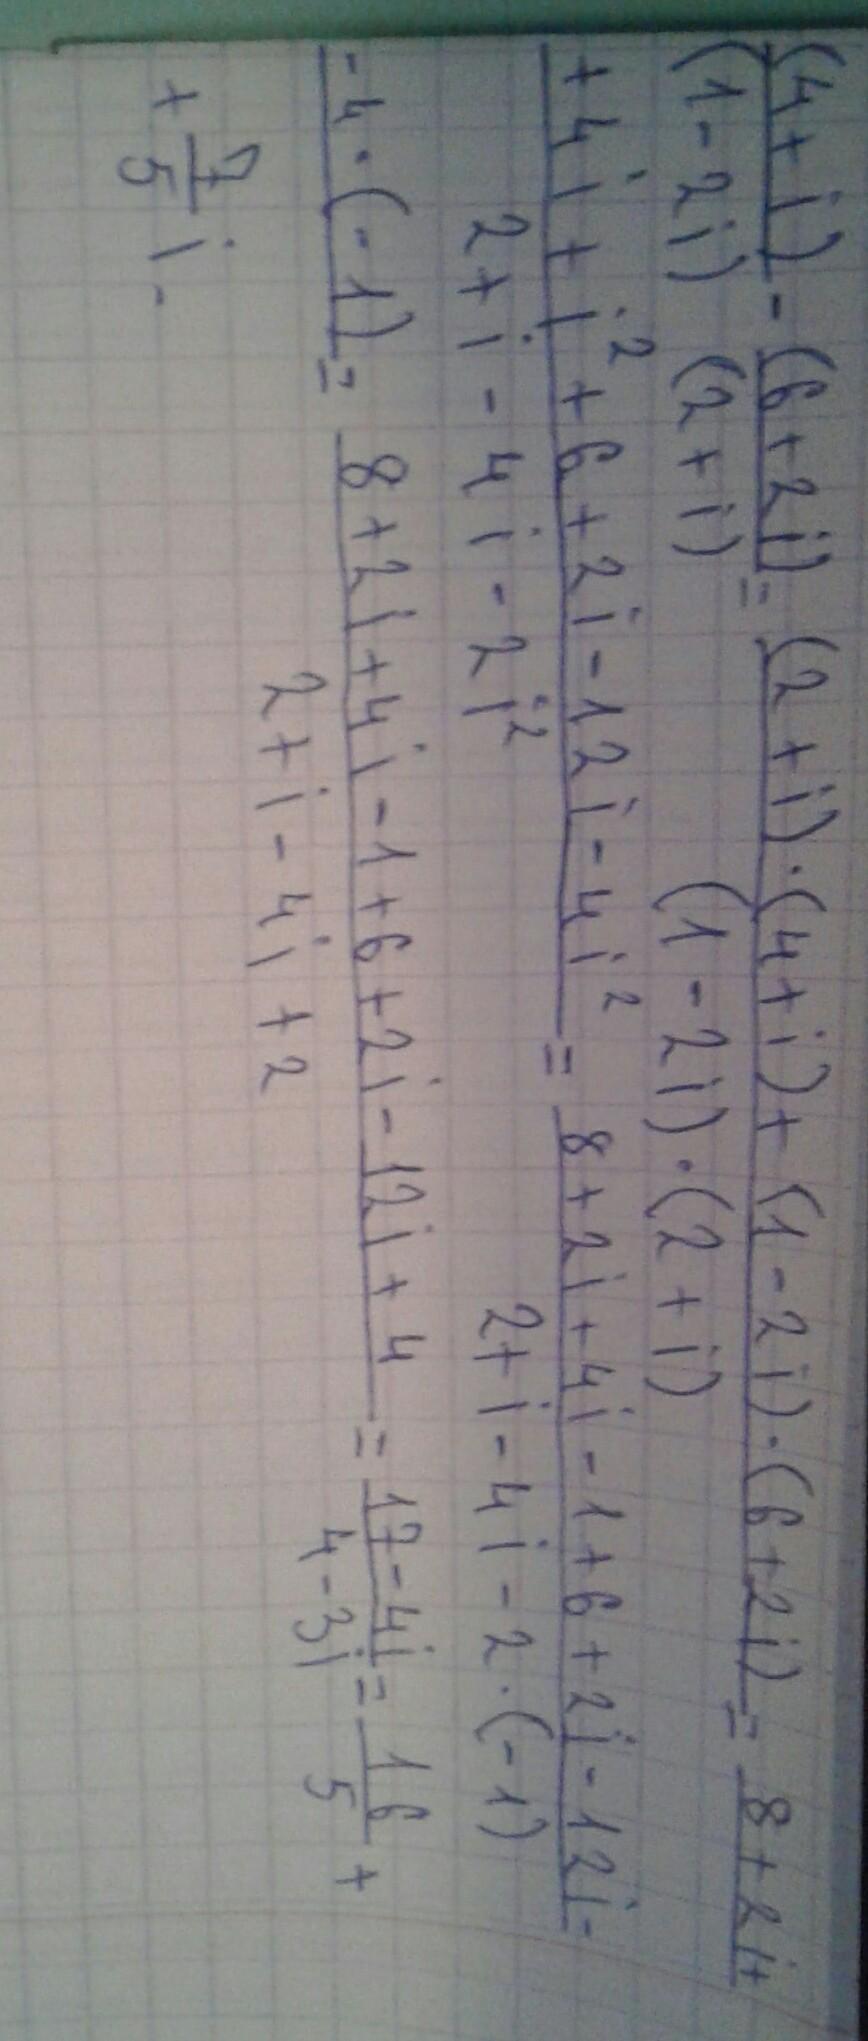 (4+i)/(1-2i) - (6+2i)/(2+i) = ((2+i)·(4+i)+(1-2i)·(6+2i))/((1-2i)·(2+i)) = 8+2i+
+4i+i²+6+2i-12i-4i²/2+i-4i-2i² = 8+2i+4i-1+6+2i-12i-/2+i-4i-2·(-1)
-4·(-1) = 8+2i+4i-1+6+2i-12i+4/2+i-4i+2 = 17-4i/4-3i = 16/5 +
+ 7/5 i.